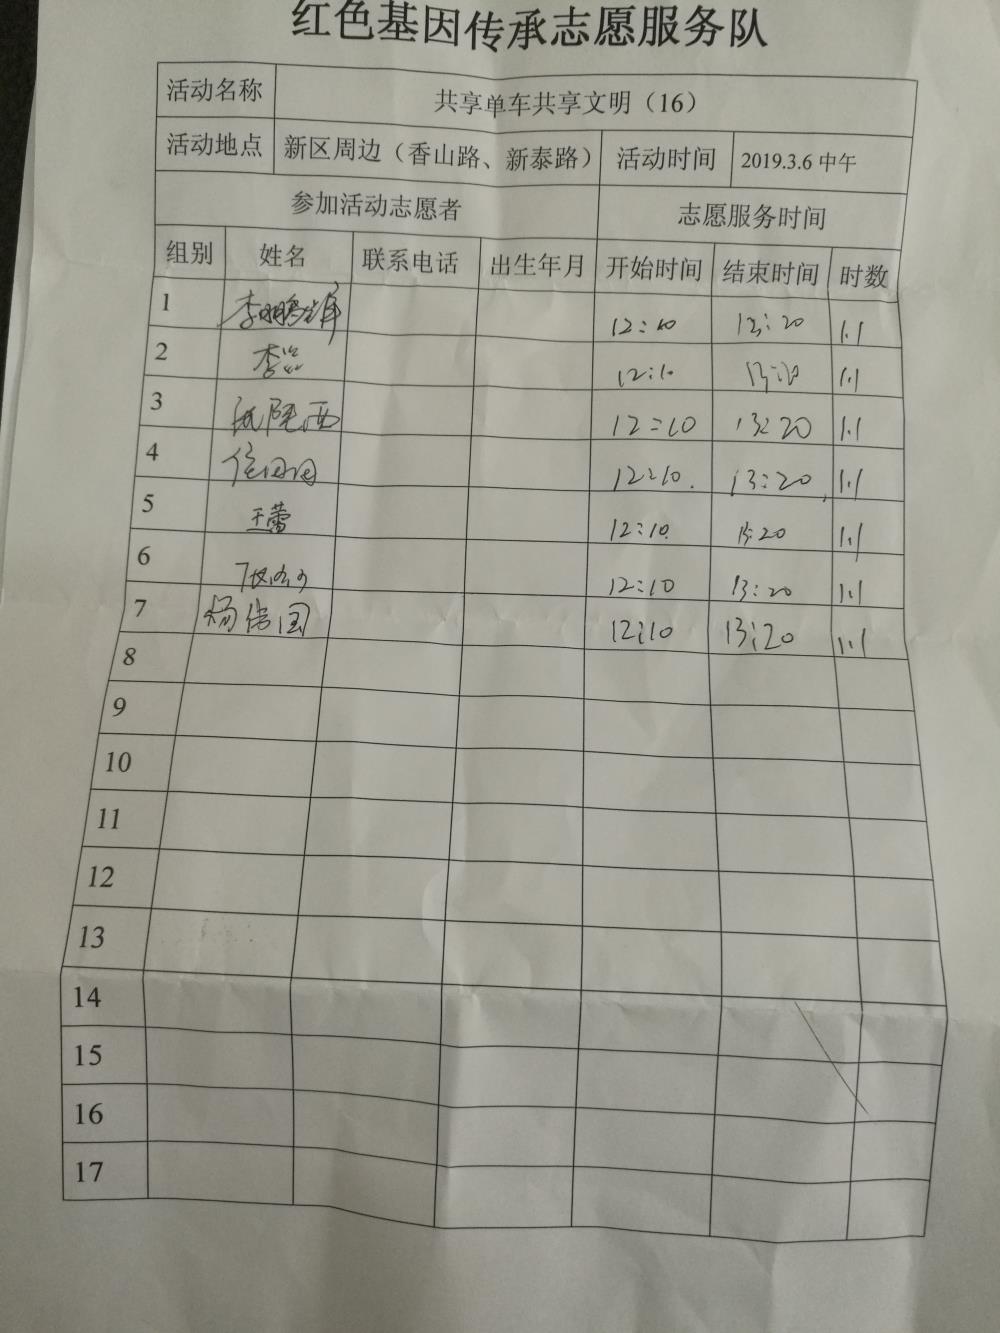 红色基因传承志愿服务队
活动名称 共享单车共享文明（16）
活动地点 新区周边（香山路、新泰路） 活动时间 2019.3.6 中午
参加活动志愿者 志愿服务时间
组别 姓名 联系电话 出生年月 开始时间 结束时间 时数
1 12:10 13:20 1.1
2 12:10 13:20 1.1
3 12:10 13:20 1.1
4 12:10. 13:20, 1.1
5 王蕾 12:10. 13:20 1.1
6 12:10 13:20 1.1
7 12:10 13:20 1.1
8
9
10
11
12
13
14
15
16
17